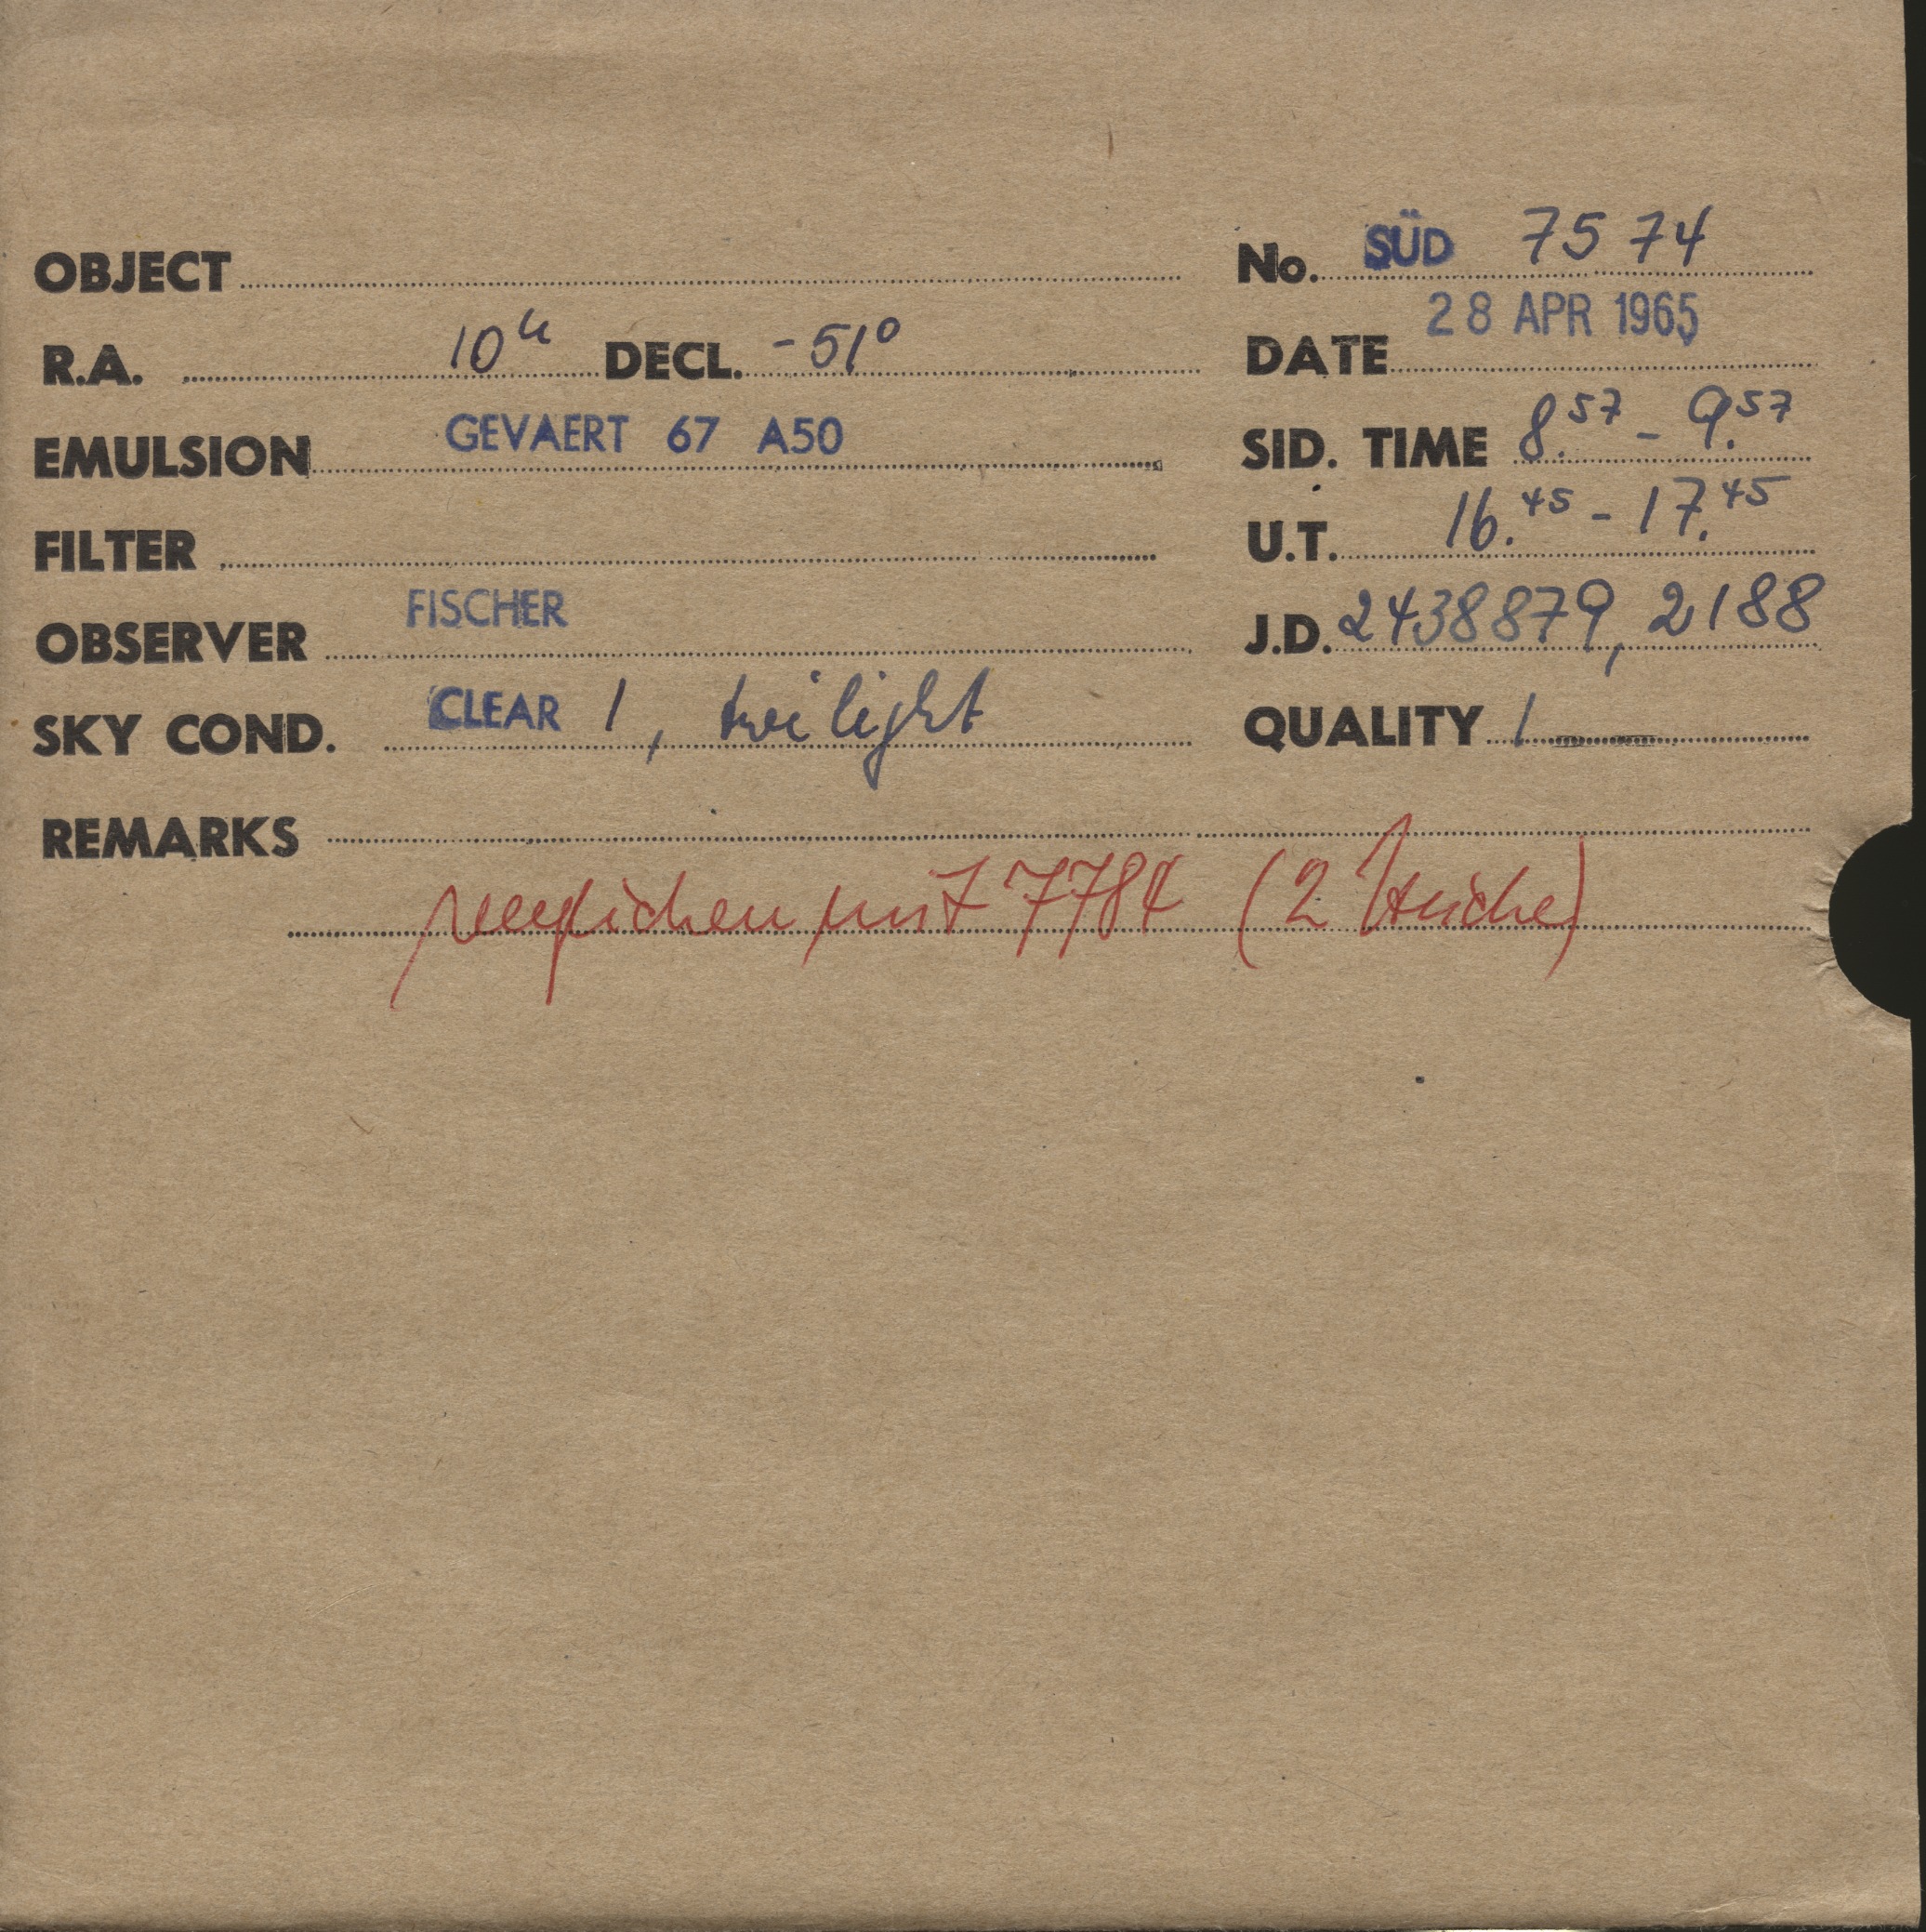 OBJECT
No. SÜD 7574
R.A. 10h DECL. -51°
DATE 28 APR 1965
EMULSION GEVAERT 67 A50
SID. TIME 8.57 - 9.57
FILTER
U.T. 16.45 - 17.45
OBSERVER FISCHER
J.D. 2438879,2188
SKY COND. CLEAR 1, twilight
QUALITY 1
REMARKS
verglichen mit 7784 (2